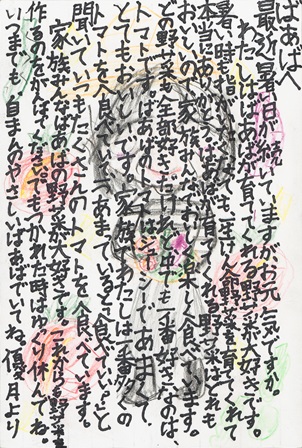 ばあばへ
最近暑い日が続いていますがお元気ですか。
わたしはばあばが育ててくれる野菜が大好きです。
暑い時も野菜を育ててくれて
本当にありがとう。ばあばが育ててくれる野菜はどれも
おいしいので家族みんなで楽しく食べています。
どの野菜も全部好きだけど、中でも一番好きなのは
トマトです。ばあばのトマトはジューシーであまくて、
とてもおいしいです。家族でわたしは一番多くの
トマトを食べている。あまっていると「食べていい。」と
聞いて、いつもたくさんのトマトを食べています。
家族みんなばあばの野菜が大好きです。これからも野菜を
作るのをがんばってください。でもつかれた時はゆっくり休んでね。
いつまでも自まんのやさしいばあばでいてね。優月より